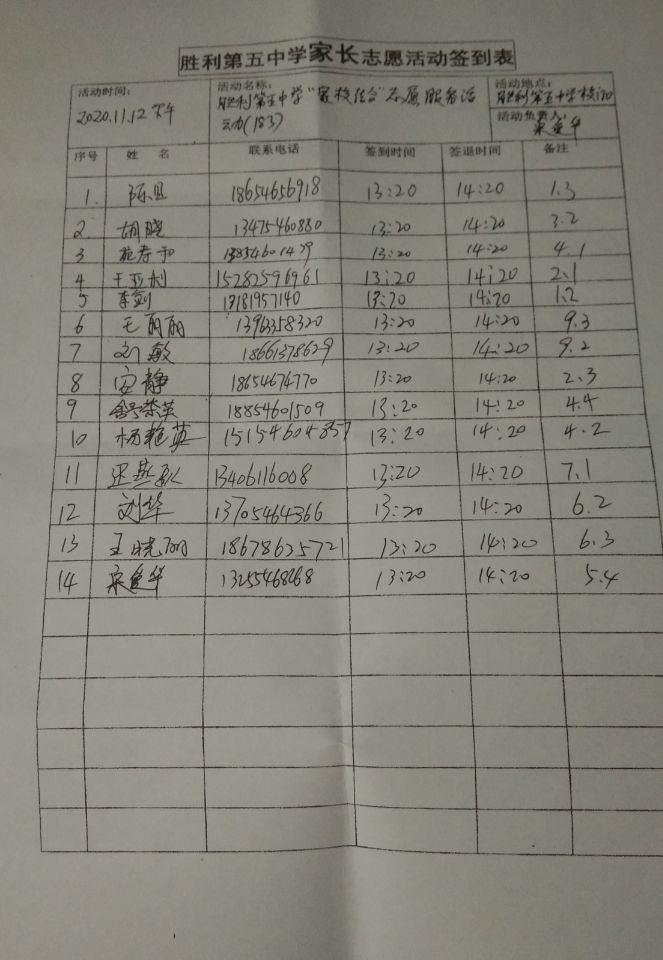 胜利第五中学家长志愿活动签到表
活动时间: 2020.11.12 下午
活动名称: 胜利第五中学"家校结合"志愿服务活动(183)
活动地点: 胜利第五中学校门口
活动负责人: 宋爱华
序号 姓名 联系电话 签到时间 签退时间 备注
1. 18654656918 13:20 14:20 1.3
2 胡晓 13475460880 13:20 14:20 3.2
3 13:20 14:20 4.1
4 王亚利 15282596961 13:20 14:20 2.1
5 李剑 14:20 1.2
6 毛丽丽 13963358320 13:20 14:20 9.3
7 刘敏 18661378629 13:20 14:20 9.2
8 安静 18654674770 13:20 14:20 2.3
9 18854601509 13:20 14:20 4.4
10 杨艳英 15154604857 13:20 14:20 4.2
11 13406116008 13:20 14:20 7.1
12 刘华 13705464366 13:20 14:20 6.2
13 王晓丽 18678635721 13:20 14:20 6.3
14 宋爱华 13255468268 13:20 14:20 5.4